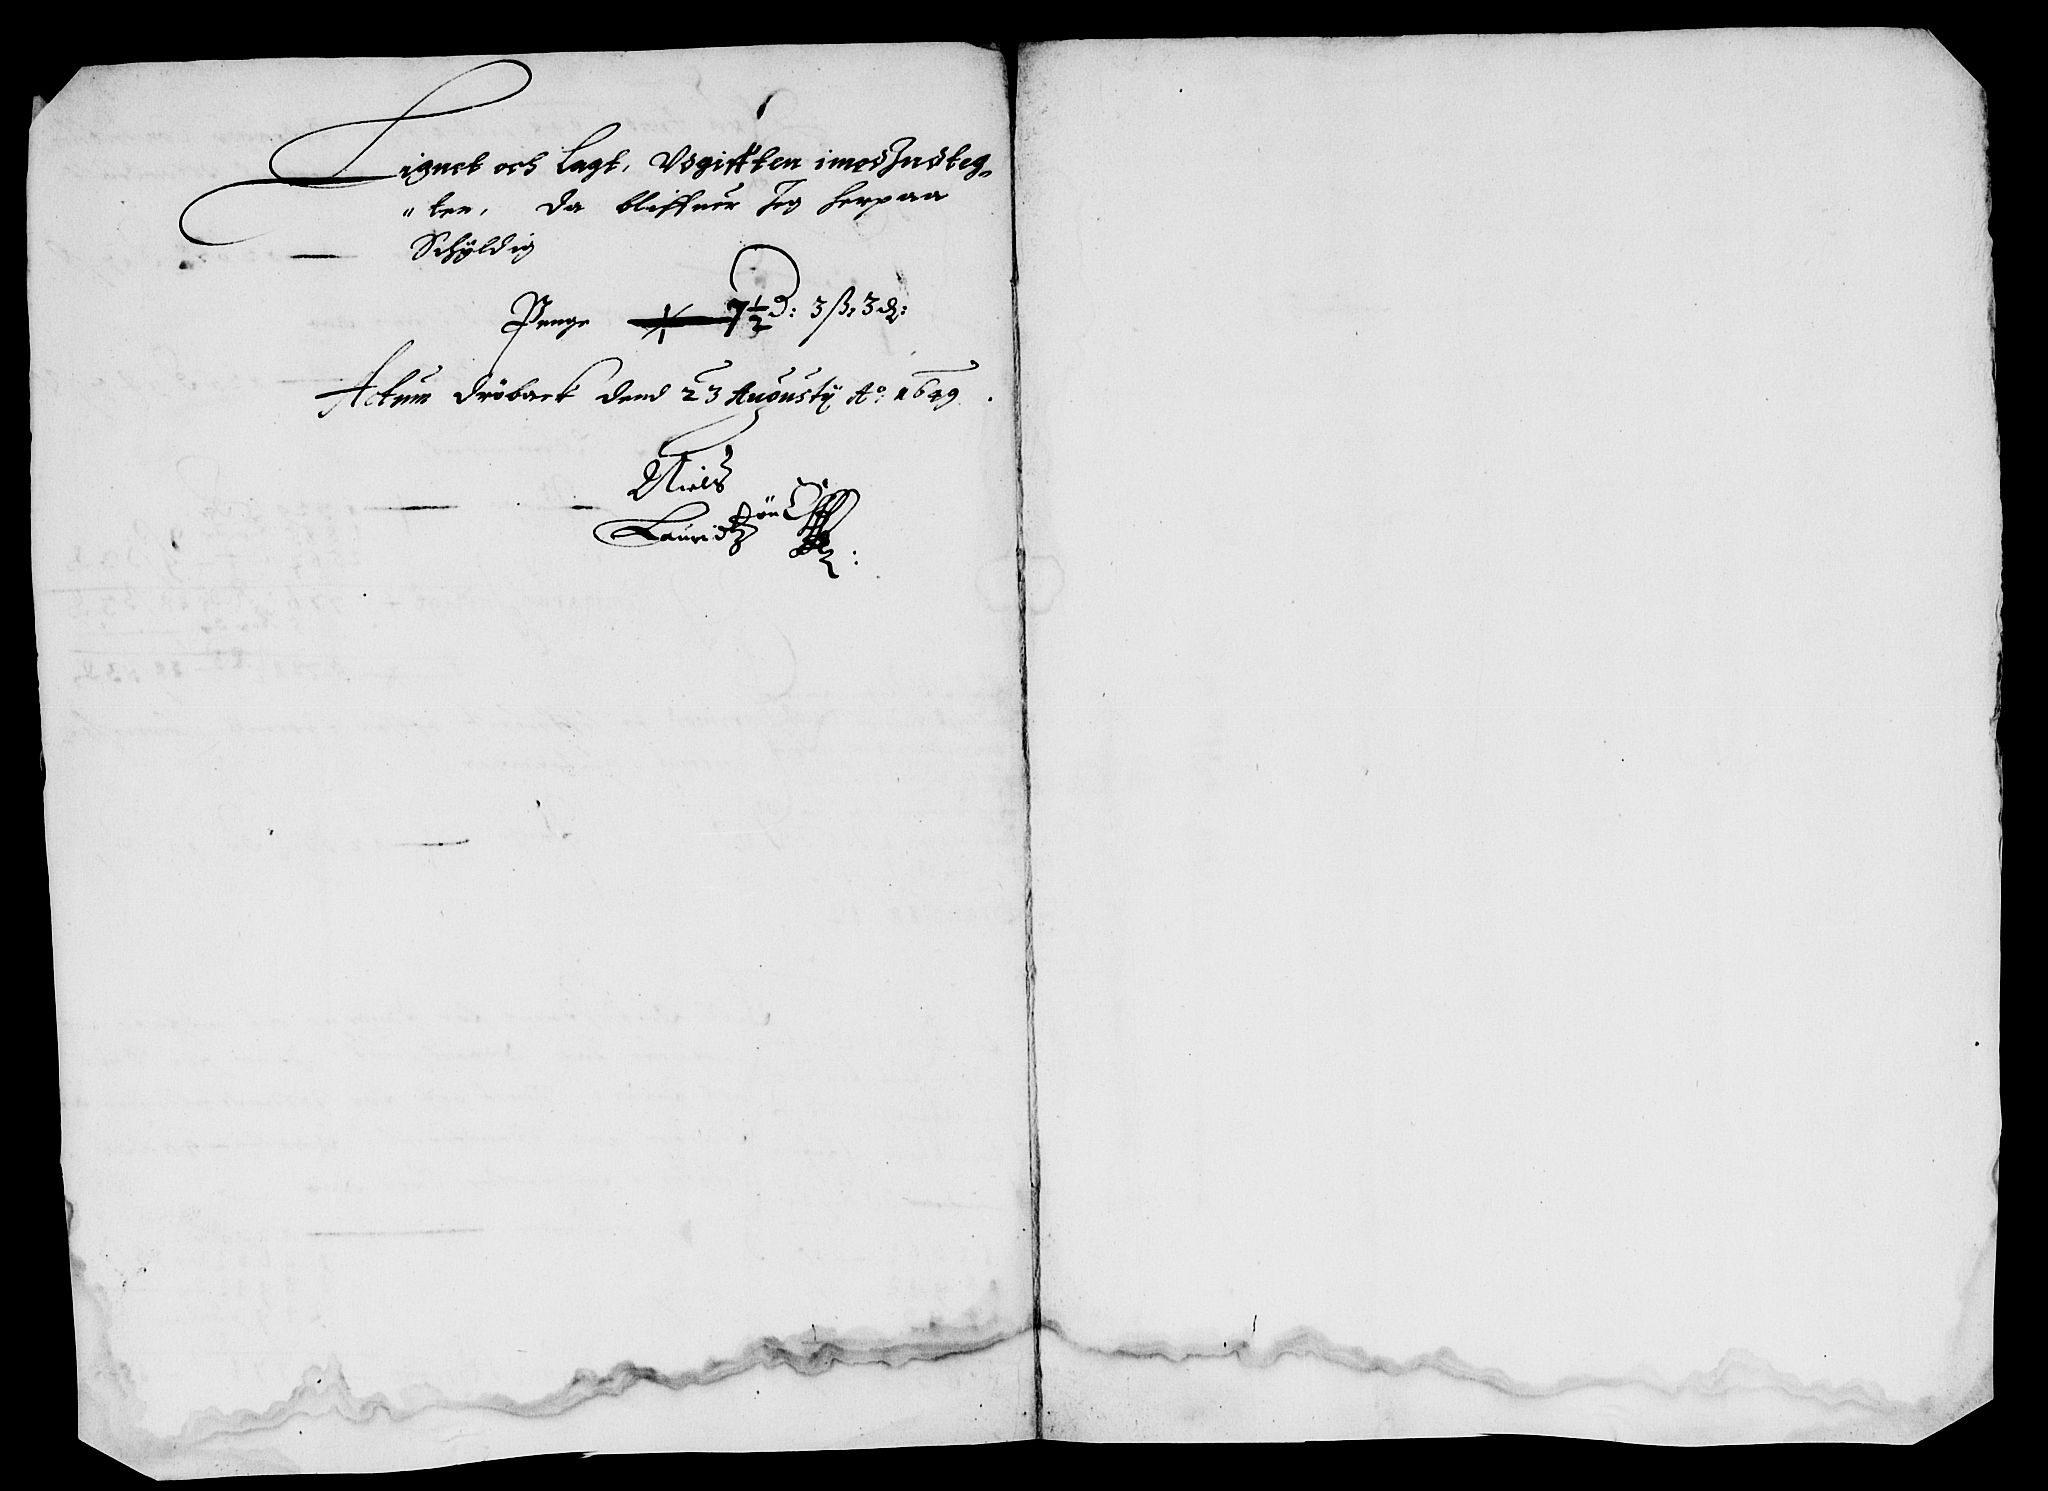 Lignet och Lagt, Vdgifften imod Indteg-
"ten, da bliffuer Jeg herpaa
Schÿldig
Penge 7½ d: 3 ß: 3 d:
Actum dröback dend 23 Augustÿ A°: 1649.
Niels
Lauridtzön